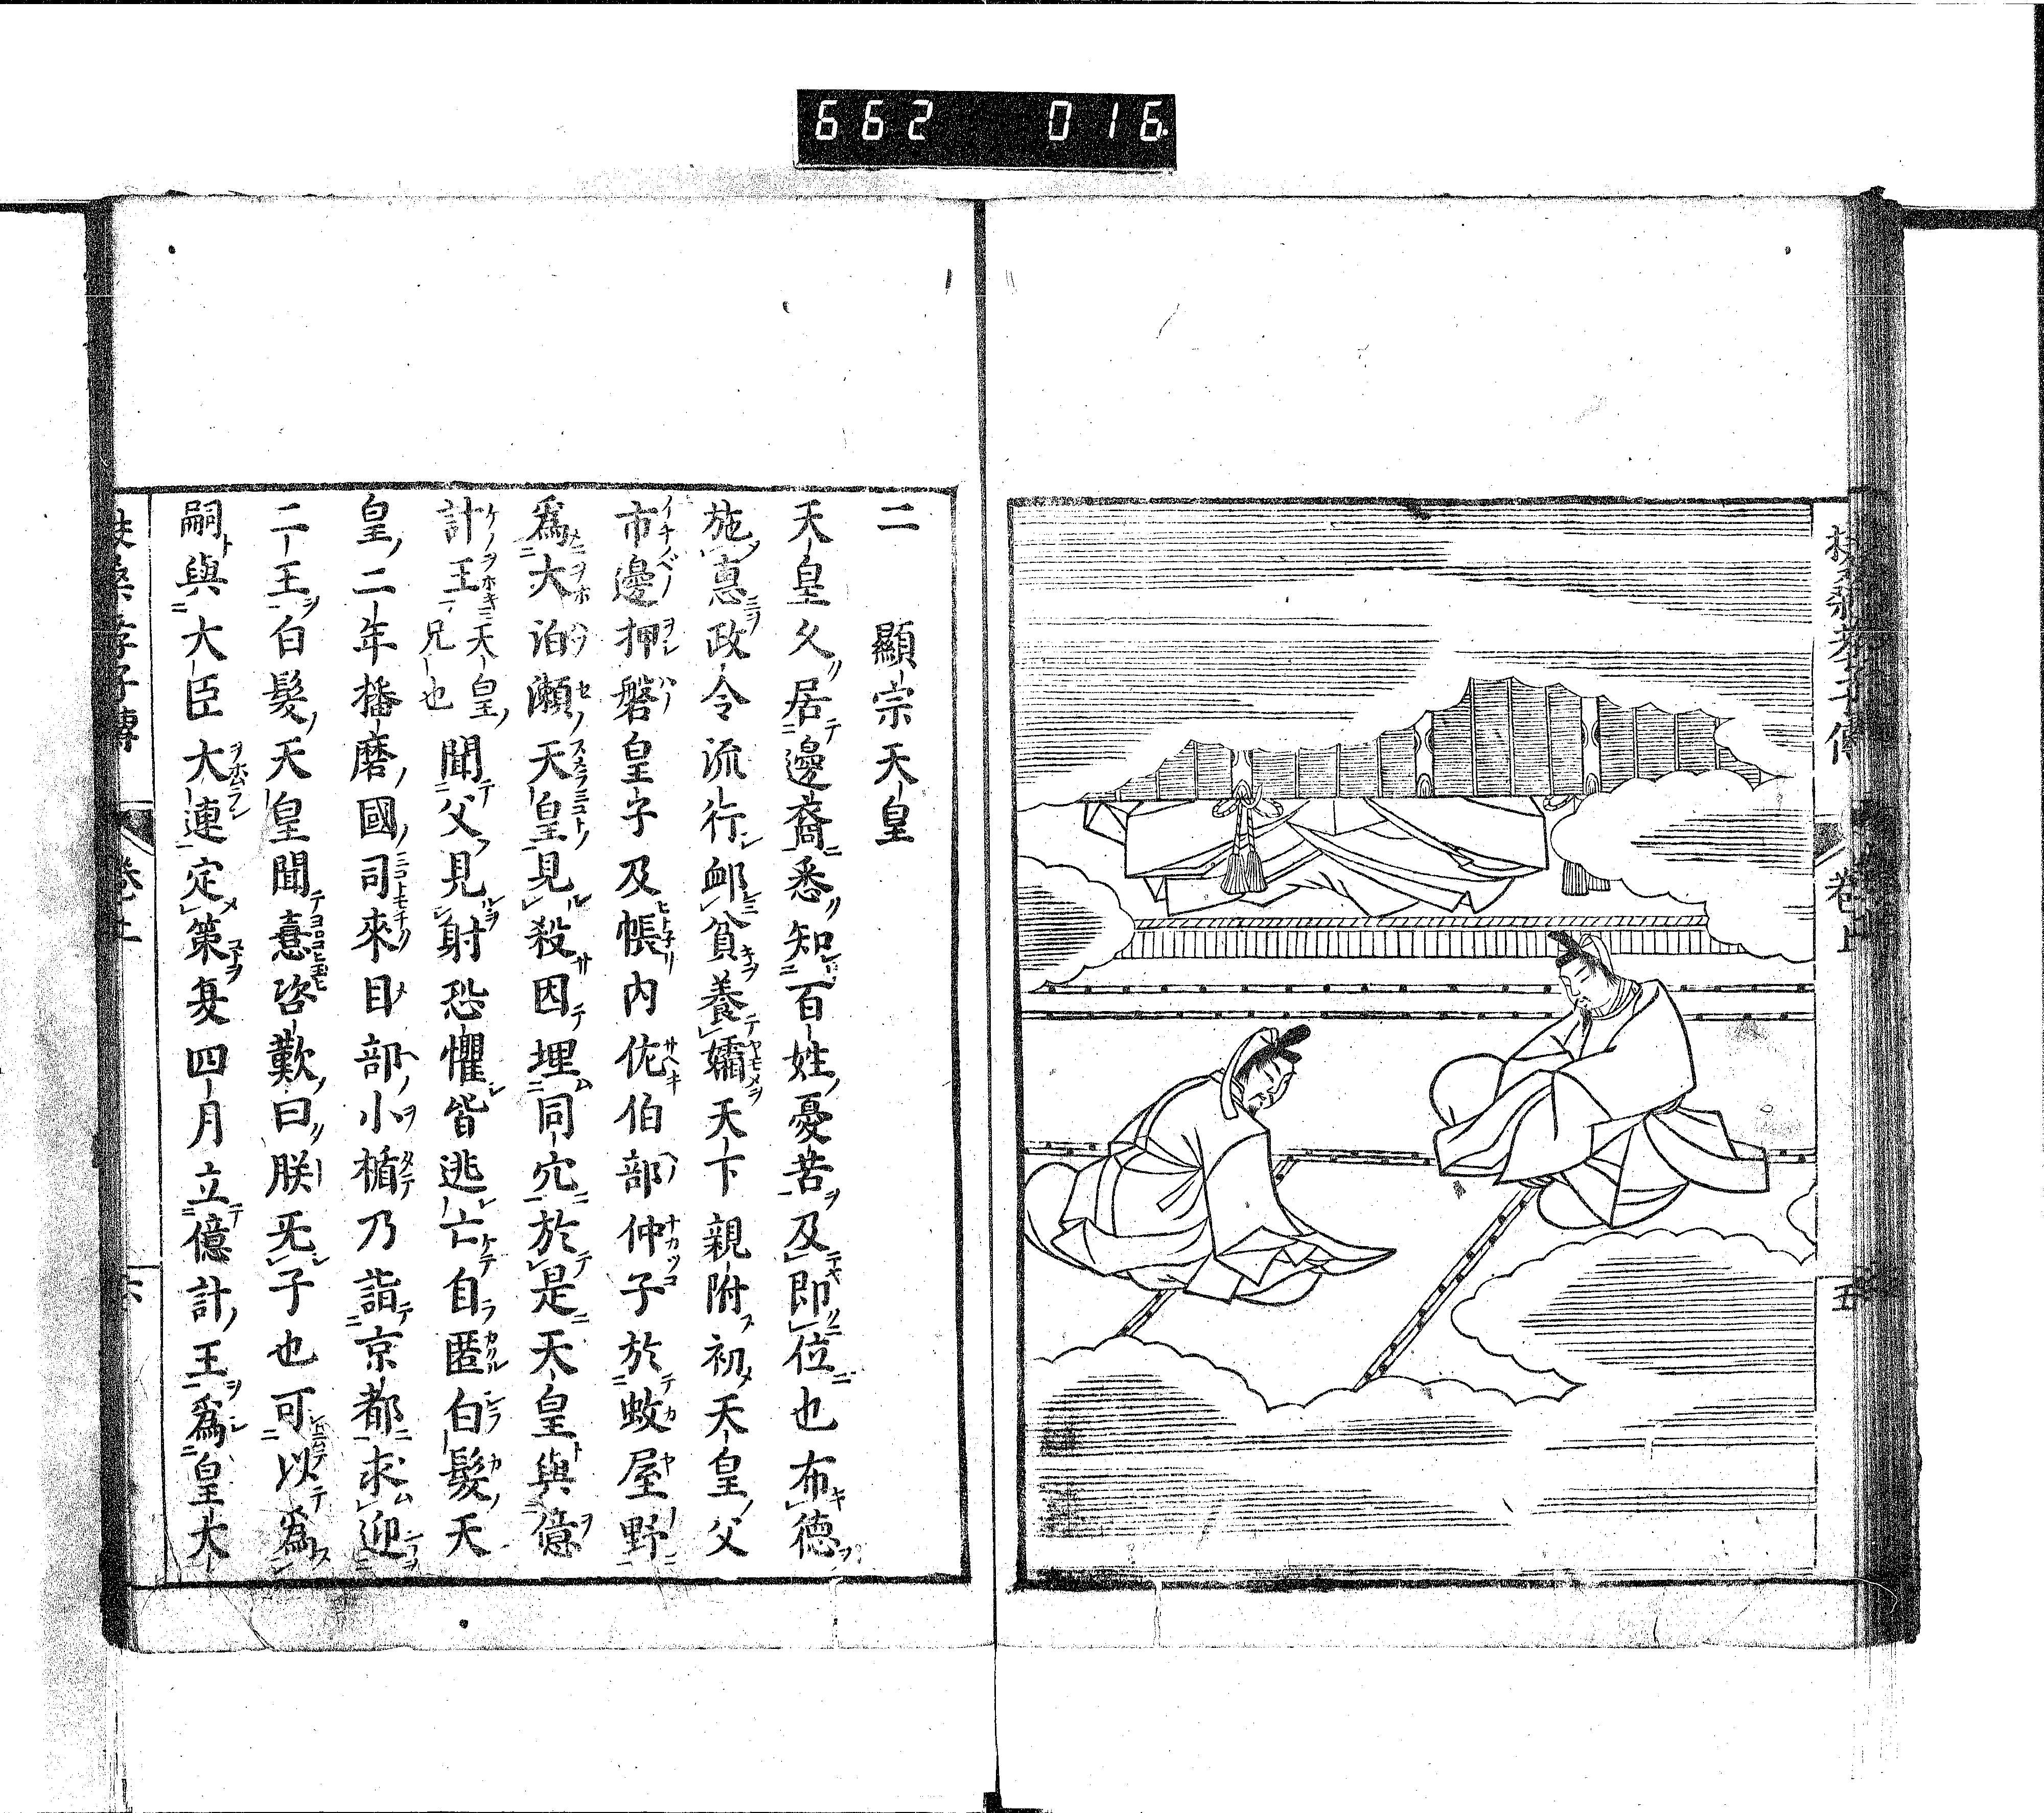 662 016
扶桑孝子傳 卷上 五
二 顯宗天皇
天皇久居邊裔悉知百姓憂苦及即位也布徳
施惠政令流行䘏貧養孀天下親附初天皇父
市邊押磐皇子及帳内佐伯部仲子於蚊屋野
爲大泊瀬天皇見殺因埋同穴於是天皇與億
計王天皇兄也聞父見射恐懼皆逃亡自匿白髮天
皇二年播磨國司來目部小楯乃詣京都求迎
二王白髮天皇聞憙咨歎曰朕无子也可以爲
嗣與大臣大連定策夏四月立億計王爲皇太
扶桑孝子傳 卷上 六